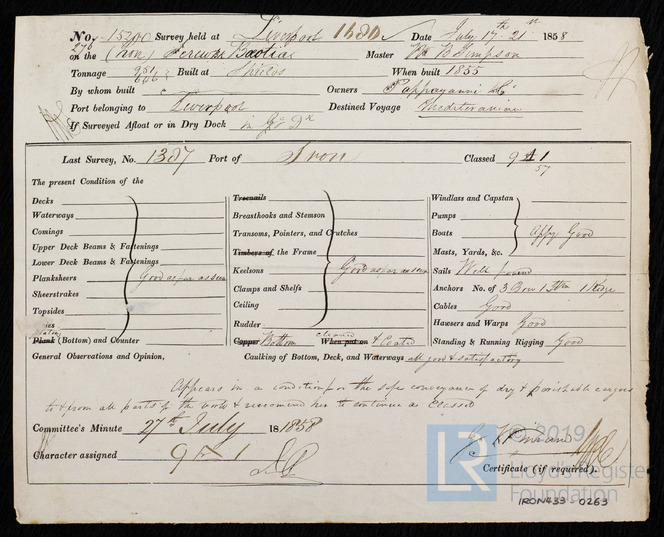 No. 15290 Survey held at Liverpool Date July 17th 21st 1858
276
on the (Iron) Screw Bk Bootia Master Wm B Simpson
Tonnage 951 Built at When built 1855
By whom built Owners Pappayanni & Co
Port belonging to Liverpool Destined Voyage Mediteranian
If Surveyed Afloat or in Dry Dock in
Last Survey, No. 1387 Port of Iron Classed 9 A 1
57
The present Condition of the
Decks
Waterways
Comings
Upper Deck Beams & Fastenings
Lower Deck Beams & Fastenings
Planksheers Good as far as seen
Sheerstrakes
Topsides
Plank (Bottom) and Counter
Treenails
Breasthooks and Stemson
Transoms, Pointers, and Crutches
Timbers of the Frame
Keelsons Good as far as seen
Clamps and Shelfs
Ceiling
Rudder
Copper Bottom When put on cleaned & Coated
Windlass and Capstan
Pumps
Boats Appy Good
Masts, Yards, &c.
Sails Well found
Anchors No. of 3 Bow 1 Strm 1 Kedge
Cables Good
Hawsers and Warps Good
Standing & Running Rigging Good
General Observations and Opinion, Caulking of Bottom, Deck, and Waterways all good & satisfactory
Appears in a condition for the safe conveyance of dry & perishable cargoes
to & from all parts of the world & recomend her to continue as Classed
Committee's Minute 27th July 18 1858
Character assigned 9 A 1
Certificate (if required).
© 2019
LR Lloyd's Register
Foundation
IRON433-0263